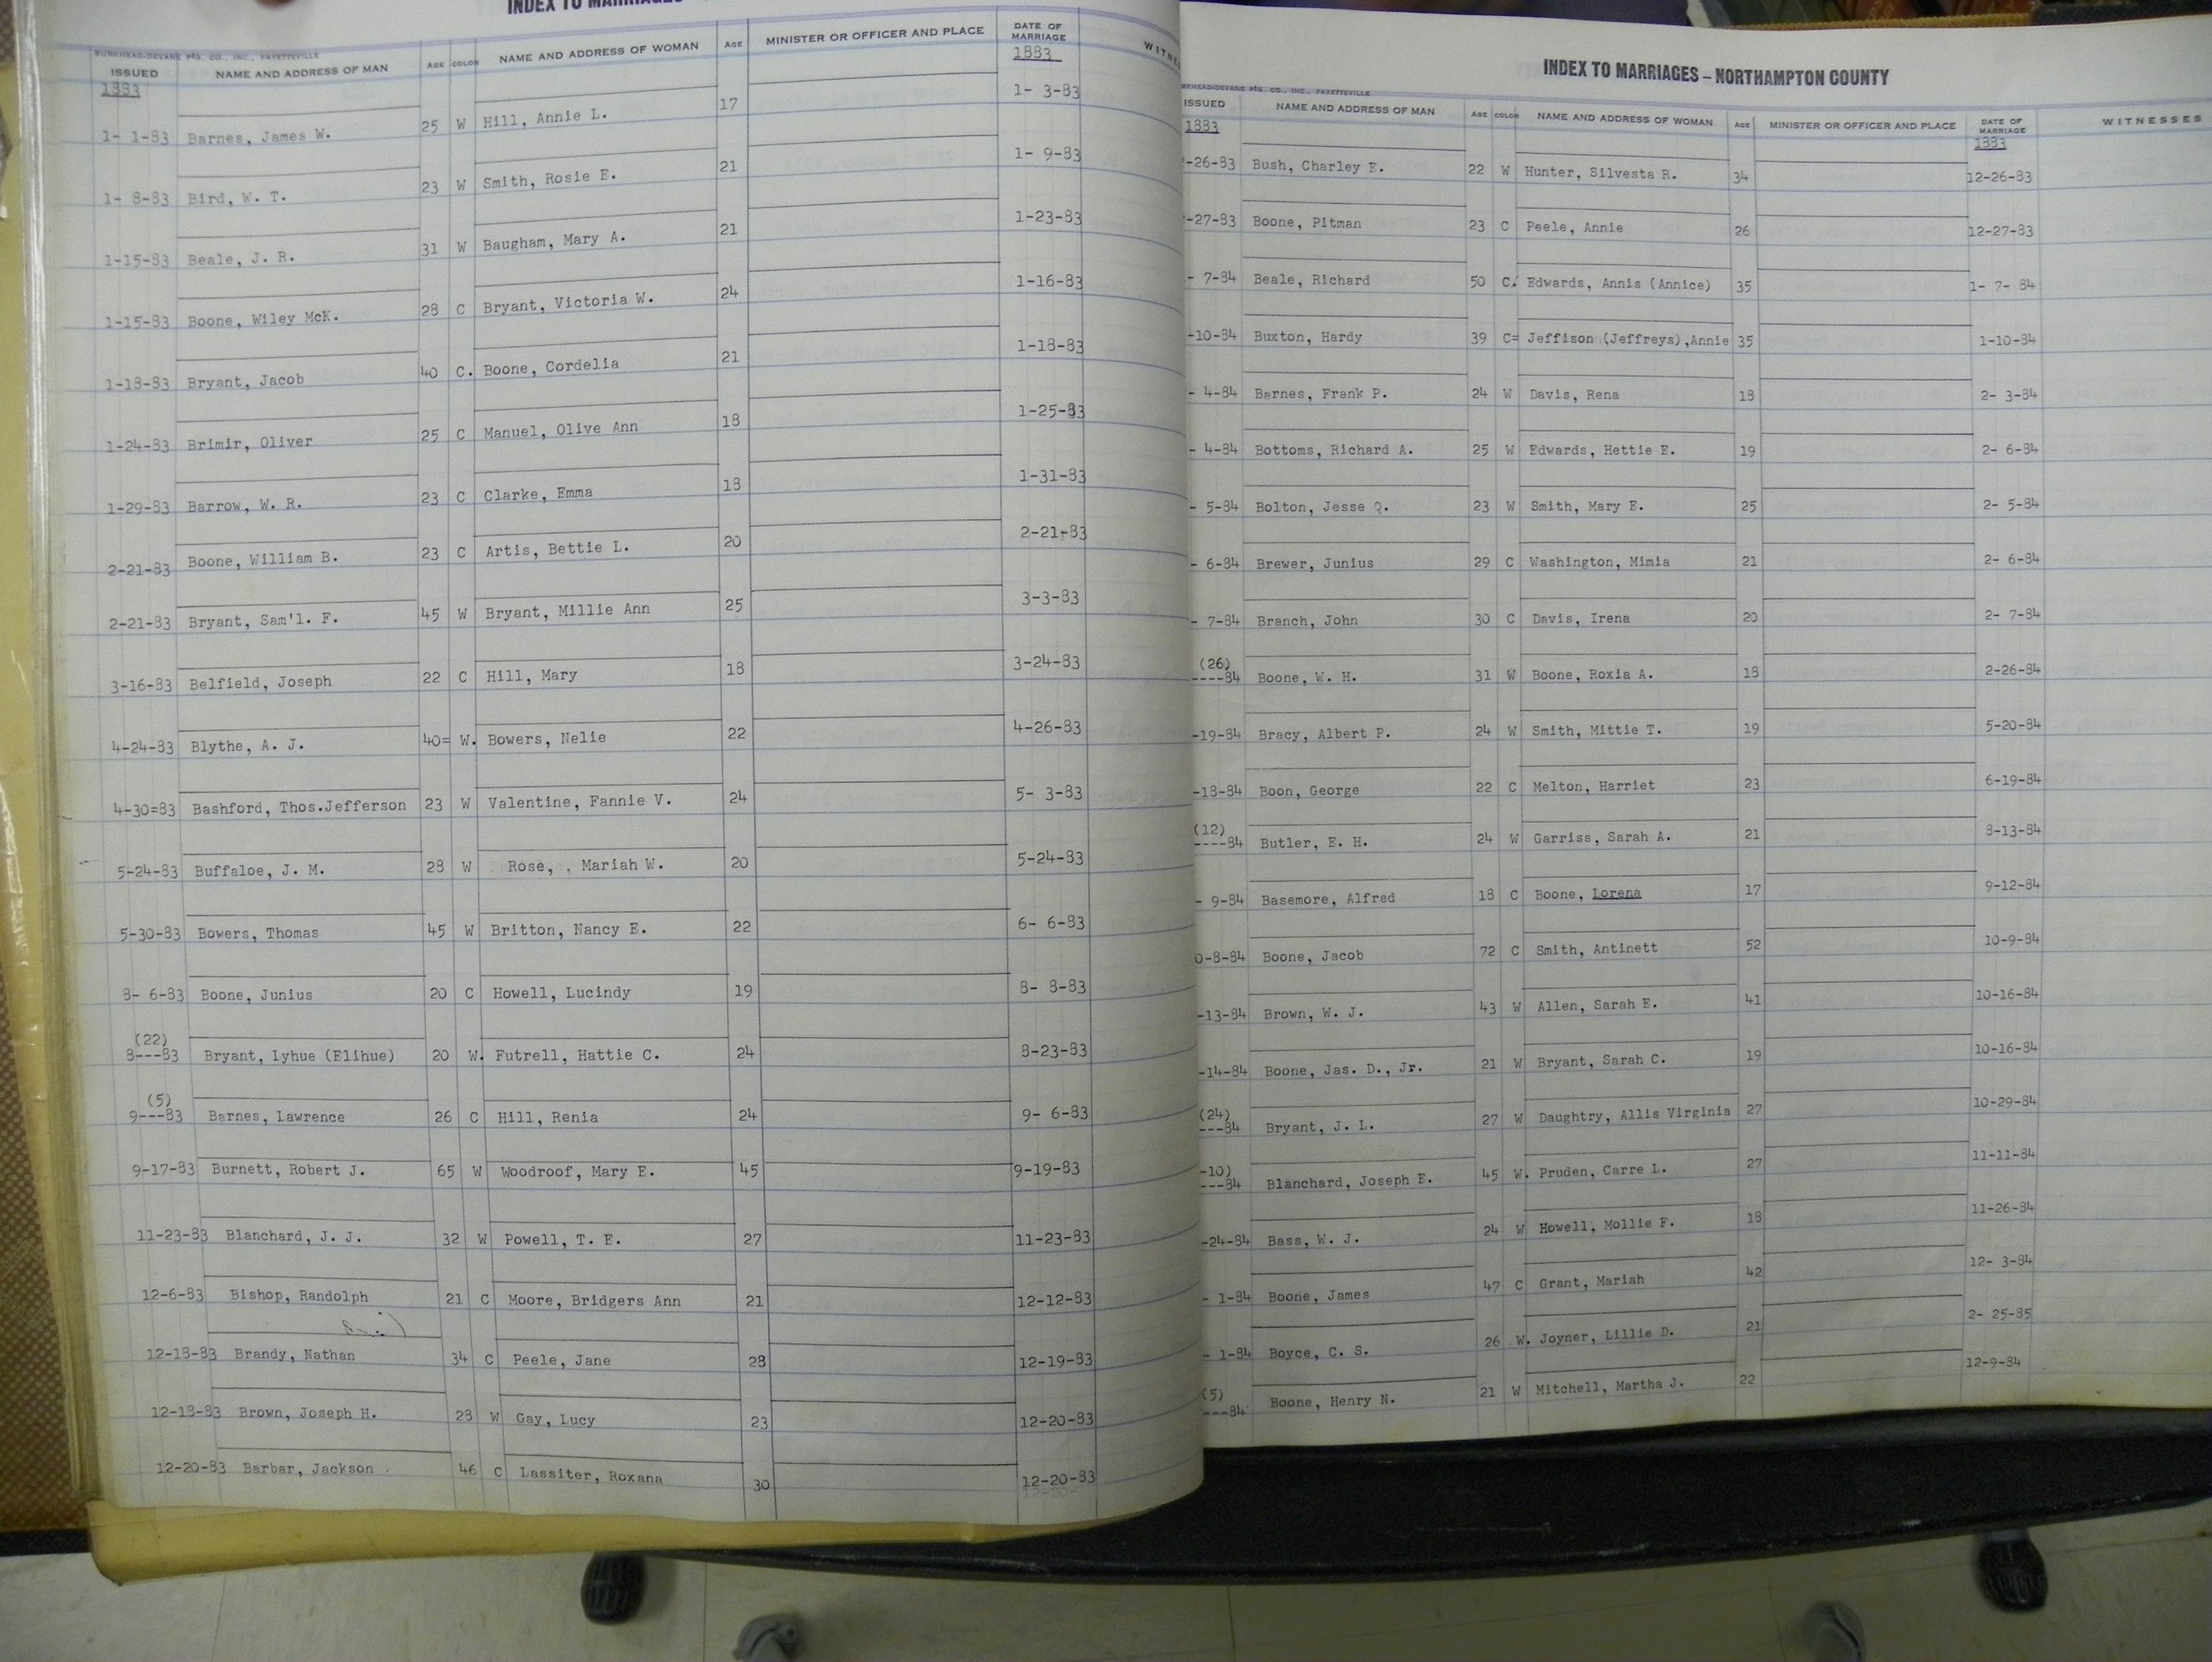 INDEX TO MARRIAGES
BURKHEAD-DEVANE PTG. CO., INC., FAYETTEVILLE
ISSUED NAME AND ADDRESS OF MAN AGE COLOR NAME AND ADDRESS OF WOMAN AGE MINISTER OR OFFICER AND PLACE DATE OF MARRIAGE
1883 1883
1- 1-83 Barnes, James W. 25 W Hill, Annie L. 17 1- 3-83
1- 8-83 Bird, W. T. 23 W Smith, Rosie E. 21 1- 9-83
1-15-83 Beale, J. R. 31 W Baugham, Mary A. 21 1-23-83
1-15-83 Boone, Wiley McK. 28 C Bryant, Victoria W. 24 1-16-83
1-18-83 Bryant, Jacob 40 C. Boone, Cordelia 21 1-18-83
1-24-83 Brimir, Oliver 25 C Manuel, Olive Ann 18 1-25-83
1-29-83 Barrow, W. R. 23 C Clarke, Emma 18 1-31-83
2-21-83 Boone, William B. 23 C Artis, Bettie L. 20 2-21-83
2-21-83 Bryant, Sam'l. F. 45 W Bryant, Millie Ann 25 3-3-83
3-16-83 Belfield, Joseph 22 C Hill, Mary 18 3-24-83
4-24-83 Blythe, A. J. 40= W. Bowers, Nelie 22 4-26-83
4-30=83 Bashford, Thos.Jefferson 23 W Valentine, Fannie V. 24 5- 3-83
5-24-83 Buffaloe, J. M. 28 W Rose, , Mariah W. 20 5-24-83
5-30-83 Bowers, Thomas 45 W Britton, Nancy E. 22 6- 6-83
8- 6-83 Boone, Junius 20 C Howell, Lucindy 19 8- 8-83
(22)
8---83 Bryant, Lyhue (Elihue) 20 W. Futrell, Hattie C. 24 8-23-83
(5)
9---83 Barnes, Lawrence 26 C Hill, Renia 24 9- 6-83
9-17-83 Burnett, Robert J. 65 W Woodroof, Mary E. 45 9-19-83
11-23-83 Blanchard, J. J. 32 W Powell, T. E. 27 11-23-83
12-6-83 Bishop, Randolph 21 C Moore, Bridgers Ann 21 12-12-83
12-18-83 Brandy, Nathan 34 C Peele, Jane 28 12-19-83
12-18-83 Brown, Joseph H. 28 W Gay, Lucy 23 12-20-83
12-20-83 Barbar, Jackson 46 C Lassiter, Roxana 30 12-20-83
INDEX TO MARRIAGES – NORTHAMPTON COUNTY
BURKHEAD-DEVANE PTG. CO., INC., FAYETTEVILLE
ISSUED NAME AND ADDRESS OF MAN AGE COLOR NAME AND ADDRESS OF WOMAN AGE MINISTER OR OFFICER AND PLACE DATE OF MARRIAGE WITNESSES
1883 1883
-26-83 Bush, Charley E. 22 W Hunter, Silvesta R. 34 12-26-83
-27-83 Boone, Pitman 23 C Peele, Annie 26 12-27-83
- 7-84 Beale, Richard 50 C. Edwards, Annis (Annice) 35 1- 7- 84
-10-84 Buxton, Hardy 39 C= Jeffison (Jeffreys),Annie 35 1-10-84
- 4-84 Barnes, Frank P. 24 W Davis, Rena 18 2- 3-84
- 4-84 Bottoms, Richard A. 25 W Edwards, Hettie E. 19 2- 6-84
- 5-84 Bolton, Jesse Q. 23 W Smith, Mary E. 25 2- 5-84
- 6-84 Brewer, Junius 29 C Washington, Mimia 21 2- 6-84
- 7-84 Branch, John 30 C Davis, Irena 20 2- 7-84
(26)
----84 Boone, W. H. 31 W Boone, Roxia A. 18 2-26-84
-19-84 Bracy, Albert P. 24 W Smith, Mittie T. 19 5-20-84
-18-84 Boon, George 22 C Melton, Harriet 23 6-19-84
(12)
----84 Butler, E. H. 24 W Garriss, Sarah A. 21 8-13-84
- 9-84 Basemore, Alfred 18 C Boone, Lorena 17 9-12-84
0-8-84 Boone, Jacob 72 C Smith, Antinett 52 10-9-84
-13-84 Brown, W. J. 43 W Allen, Sarah E. 41 10-16-84
-14-84 Boone, Jas. D., Jr. 21 W Bryant, Sarah C. 19 10-16-84
(24)
---84 Bryant, J. L. 27 W Daughtry, Allis Virginia 27 10-29-84
-10)
---84 Blanchard, Joseph E. 45 W. Pruden, Carre L. 27 11-11-84
-24-84 Bass, W. J. 24 W Howell, Mollie F. 18 11-26-84
- 1-84 Boone, James 47 C Grant, Mariah 42 12- 3-84
- 1-84 Boyce, C. S. 26 W. Joyner, Lillie D. 21 2- 25-85
(5)
---84 Boone, Henry N. 21 W Mitchell, Martha J. 22 12-9-84